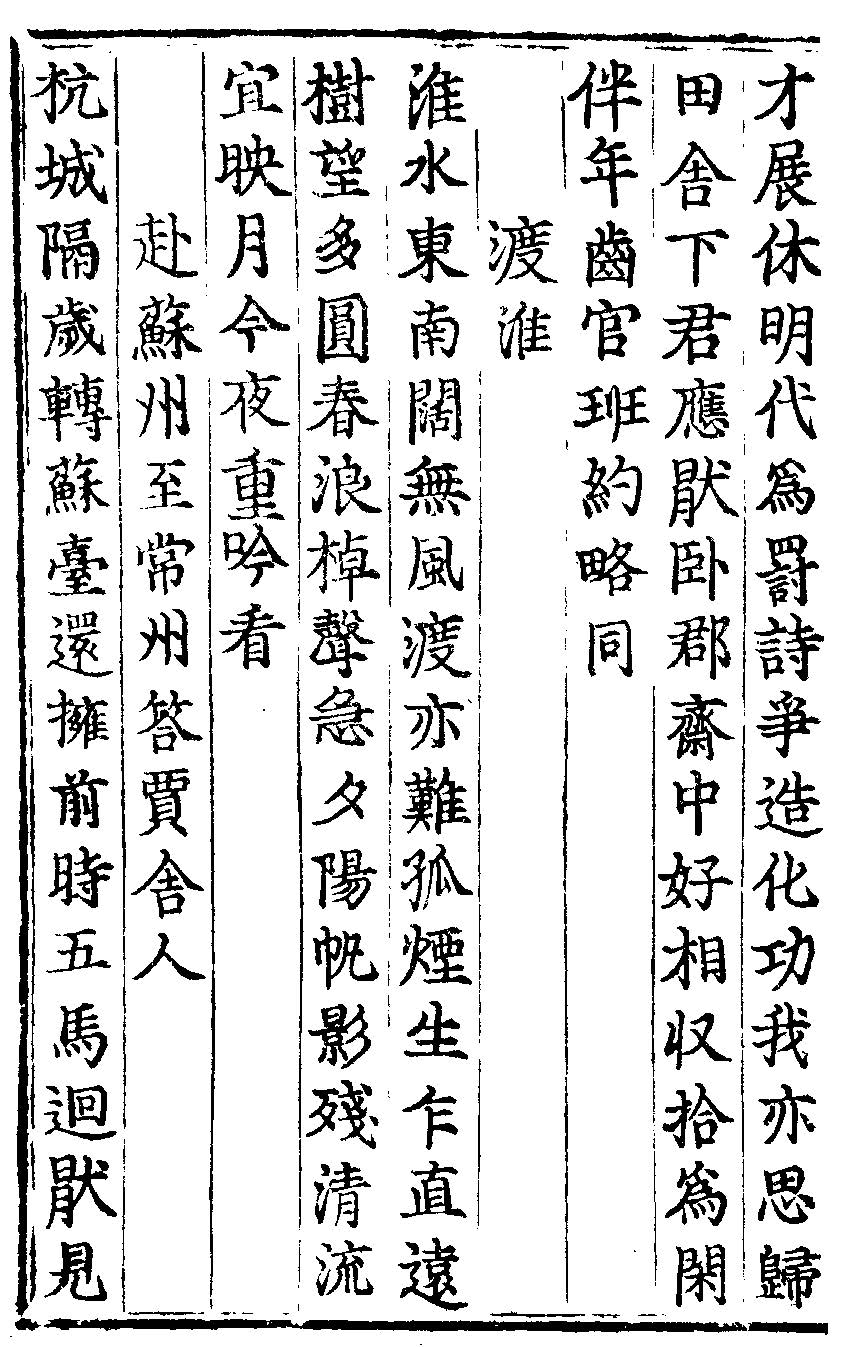 才展休明代爲罸詩爭造化功我亦思歸
田舎下君應猒卧郡齋中好相収拾爲閑
伴年齒官班約略同
渡淮
淮水東南闊無風渡亦難孤煙生乍直遠
樹望多圓春浪棹聲急夕陽帆影殘清流
宜映月今夜重吟看
赴蘇州至常州答賈舎人
杭城隔歲轉蘇臺還擁前時五馬迴猒見